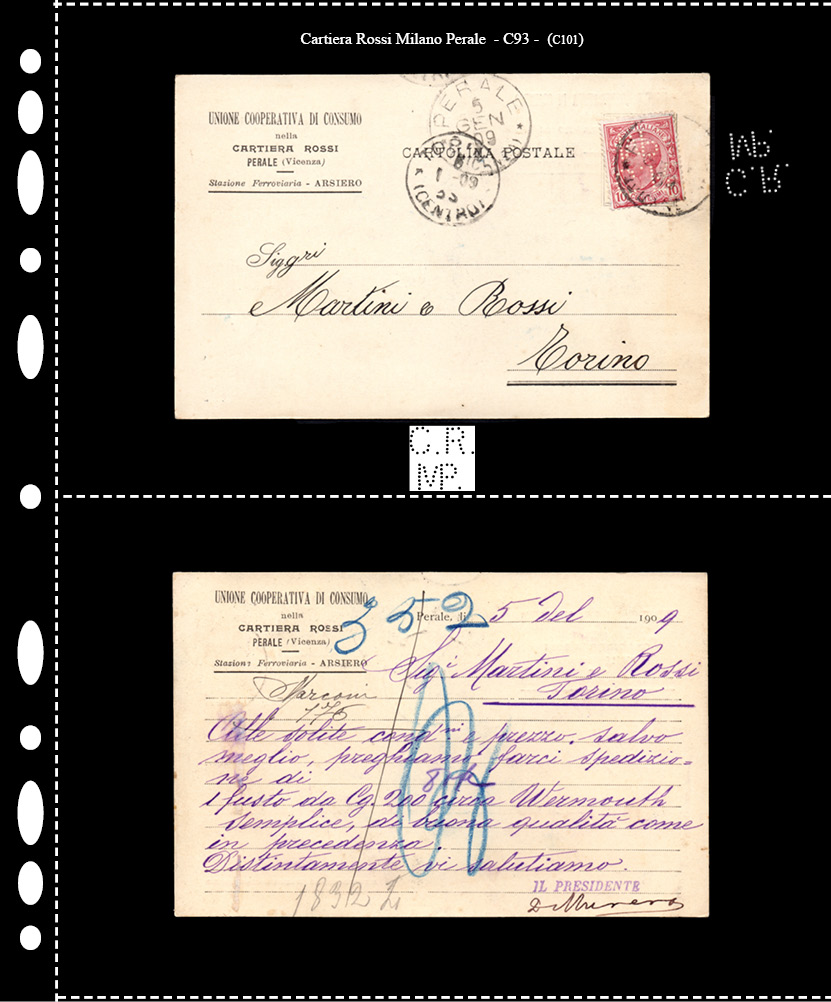 Cartiera Rossi Milano Perale - C93 - (C101)
UNIONE COOPERATIVA DI CONSUMO
nella
CARTIERA ROSSI
PERALE (Vicenza)
Stazione Ferroviaria - ARSIERO
PERALE
5
GEN
09
CARTOLINA POSTALE
1-09
(CENTRO)
10
10
MP.
C.R.
Siggri
Martini e Rossi
Torino
C.R.
MP.
UNIONE COOPERATIVA DI CONSUMO
nella
CARTIERA ROSSI
PERALE (Vicenza)
Stazione Ferroviaria - ARSIERO
352
Perale, di 5 del 1909
Sigi Martini e Rossi
Torino
Marconi
Alle solite condni e prezzo, salvo
meglio, preghiamo farci spedizio-
ne di
1 fusto da Cg. 200 circa Wermouth
semplice, di buona qualità come
in precedenza.
Distintamente vi salutiamo.
IL PRESIDENTE
1832